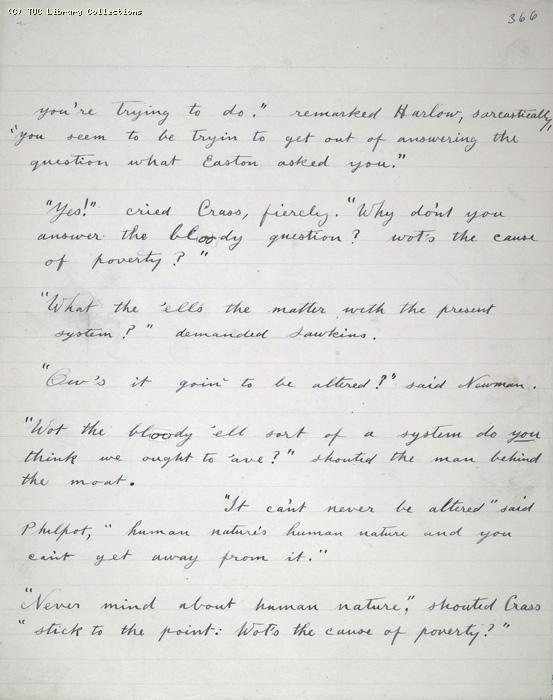 (C) TUC Library Collections
366
you're trying to do." remarked Harlow, sarcastically,
"you seem to be tryin to get out of answering the
question what Easton asked you."
"Yes!" cried Crass, fiercely. "Why dont you
answer the bloody question? wot's the cause
of poverty?"
"What the 'ells the matter with the present
system?" demanded Sawkins.
"Ow's it goin' to be altered?" said Newman.
"Wot the bloody 'ell sort of a system do you
think we ought to 'ave?" shouted the man behind
the moat.
"It can't never be altered" said
Philpot, "human nature's human nature and you
can't get away from it."
"Never mind about human nature", shouted Crass
"stick to the point: Wot's the cause of poverty?"